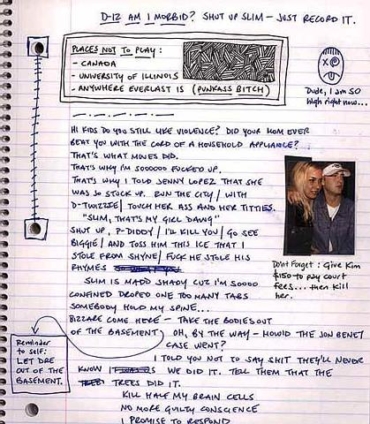 D-12 AM I MORBID? SHUT UP SLIM - JUST RECORD IT.
PLACES NOT TO PLAY:
- CANADA
- UNIVERSITY OF ILLINOIS
- ANYWHERE EVERLAST IS (PUNKASS BITCH)
Dude, I am SO
high right now...
HI KIDS DO YOU STILL LIKE VIOLENCE? DID YOUR MOM EVER
BEAT YOU WITH THE CORD OF A HOUSEHOLD APPLIANCE?
THAT'S WHAT MINES DID.
THAT'S WHY I'M SOOOOO FUCKED UP.
THAT'S WHY I TOLD JENNY LOPEZ THAT SHE
WAS SO STUCK UP. RUN THE CITY / WITH
D-TWIZZIE / TOUCH HER ASS AND HER TITTIES.
"SLIM, THAT'S MY GIRL DAWG"
SHUT UP, P-DIDDY / I'LL KILL YOU / GO SEE
BIGGIE / AND TOSS HIM THIS ICE THAT I
STOLE FROM SHYNE / FUCK HE STOLE HIS
RHYMES
SLIM IS MADD SHADY CUZ I'M SOOOO
CONFINED DROPED ONE TOO MANY TABS
SOMEBODY HOLD MY SPINE...
BIZZARE COME HERE - TAKE THE BODIES OUT
OF THE BASEMENT, OH, BY THE WAY - HOW'D THE JON BENET
CASE WENT?
I TOLD YOU NOT TO SAY SHIT THEY'LL NEVER
KNOW WE DID IT. TELL THEM THAT THE
TREES DID IT.
KILL HALF MY BRAIN CELLS
NO MORE GUILTY CONSCIENCE
I PROMISE TO RESPOND
Don't Forget: Give Kim
$150 to pay court
fees... then kill
her.
Reminder
to self:
LET DRE
OUT OF THE
BASEMENT.